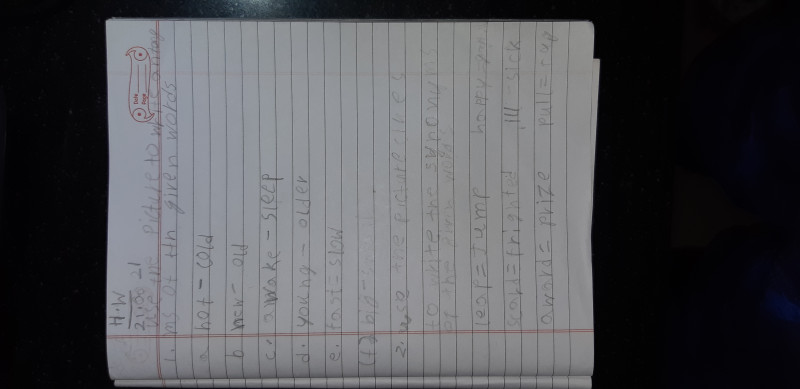 H.W
Date
Page
use the picture to write antony
1. ms of th given words
a hot - cold
b new - old
c. awake - sleep
d. young - older
e. fast = slow
(f) big - small
2. use the picture clues
to write the synonyms
of the given words
leap = Jump happy =
scard = frighted ill - sick
award = prize pull =